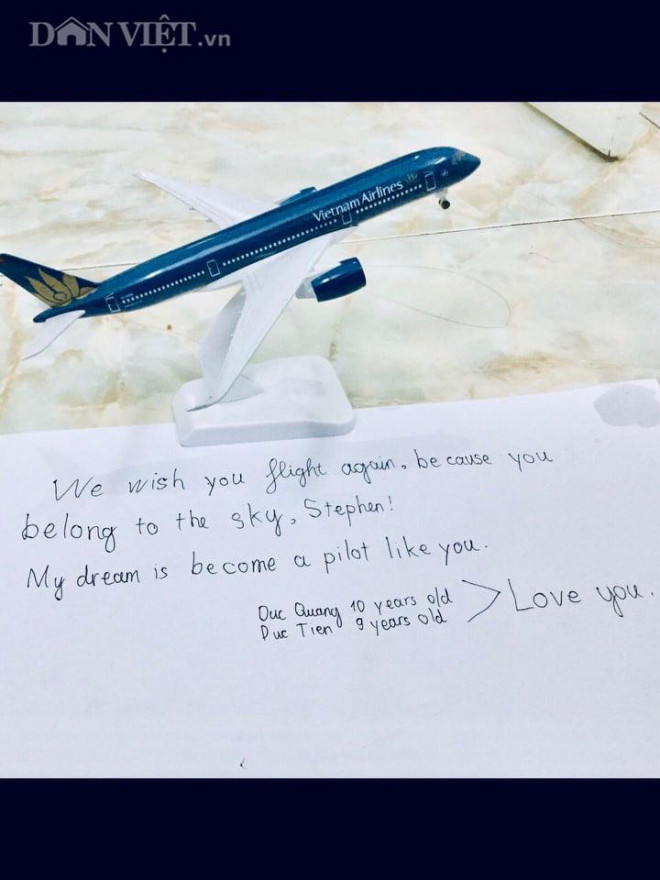 DÂN VIỆT.vn
Vietnam Airlines
We wish you flight again, because you
belong to the sky, Stephen!
My dream is become a pilot like you.
Duc Quang 10 years old
Duc Tien 9 years old
Love you.